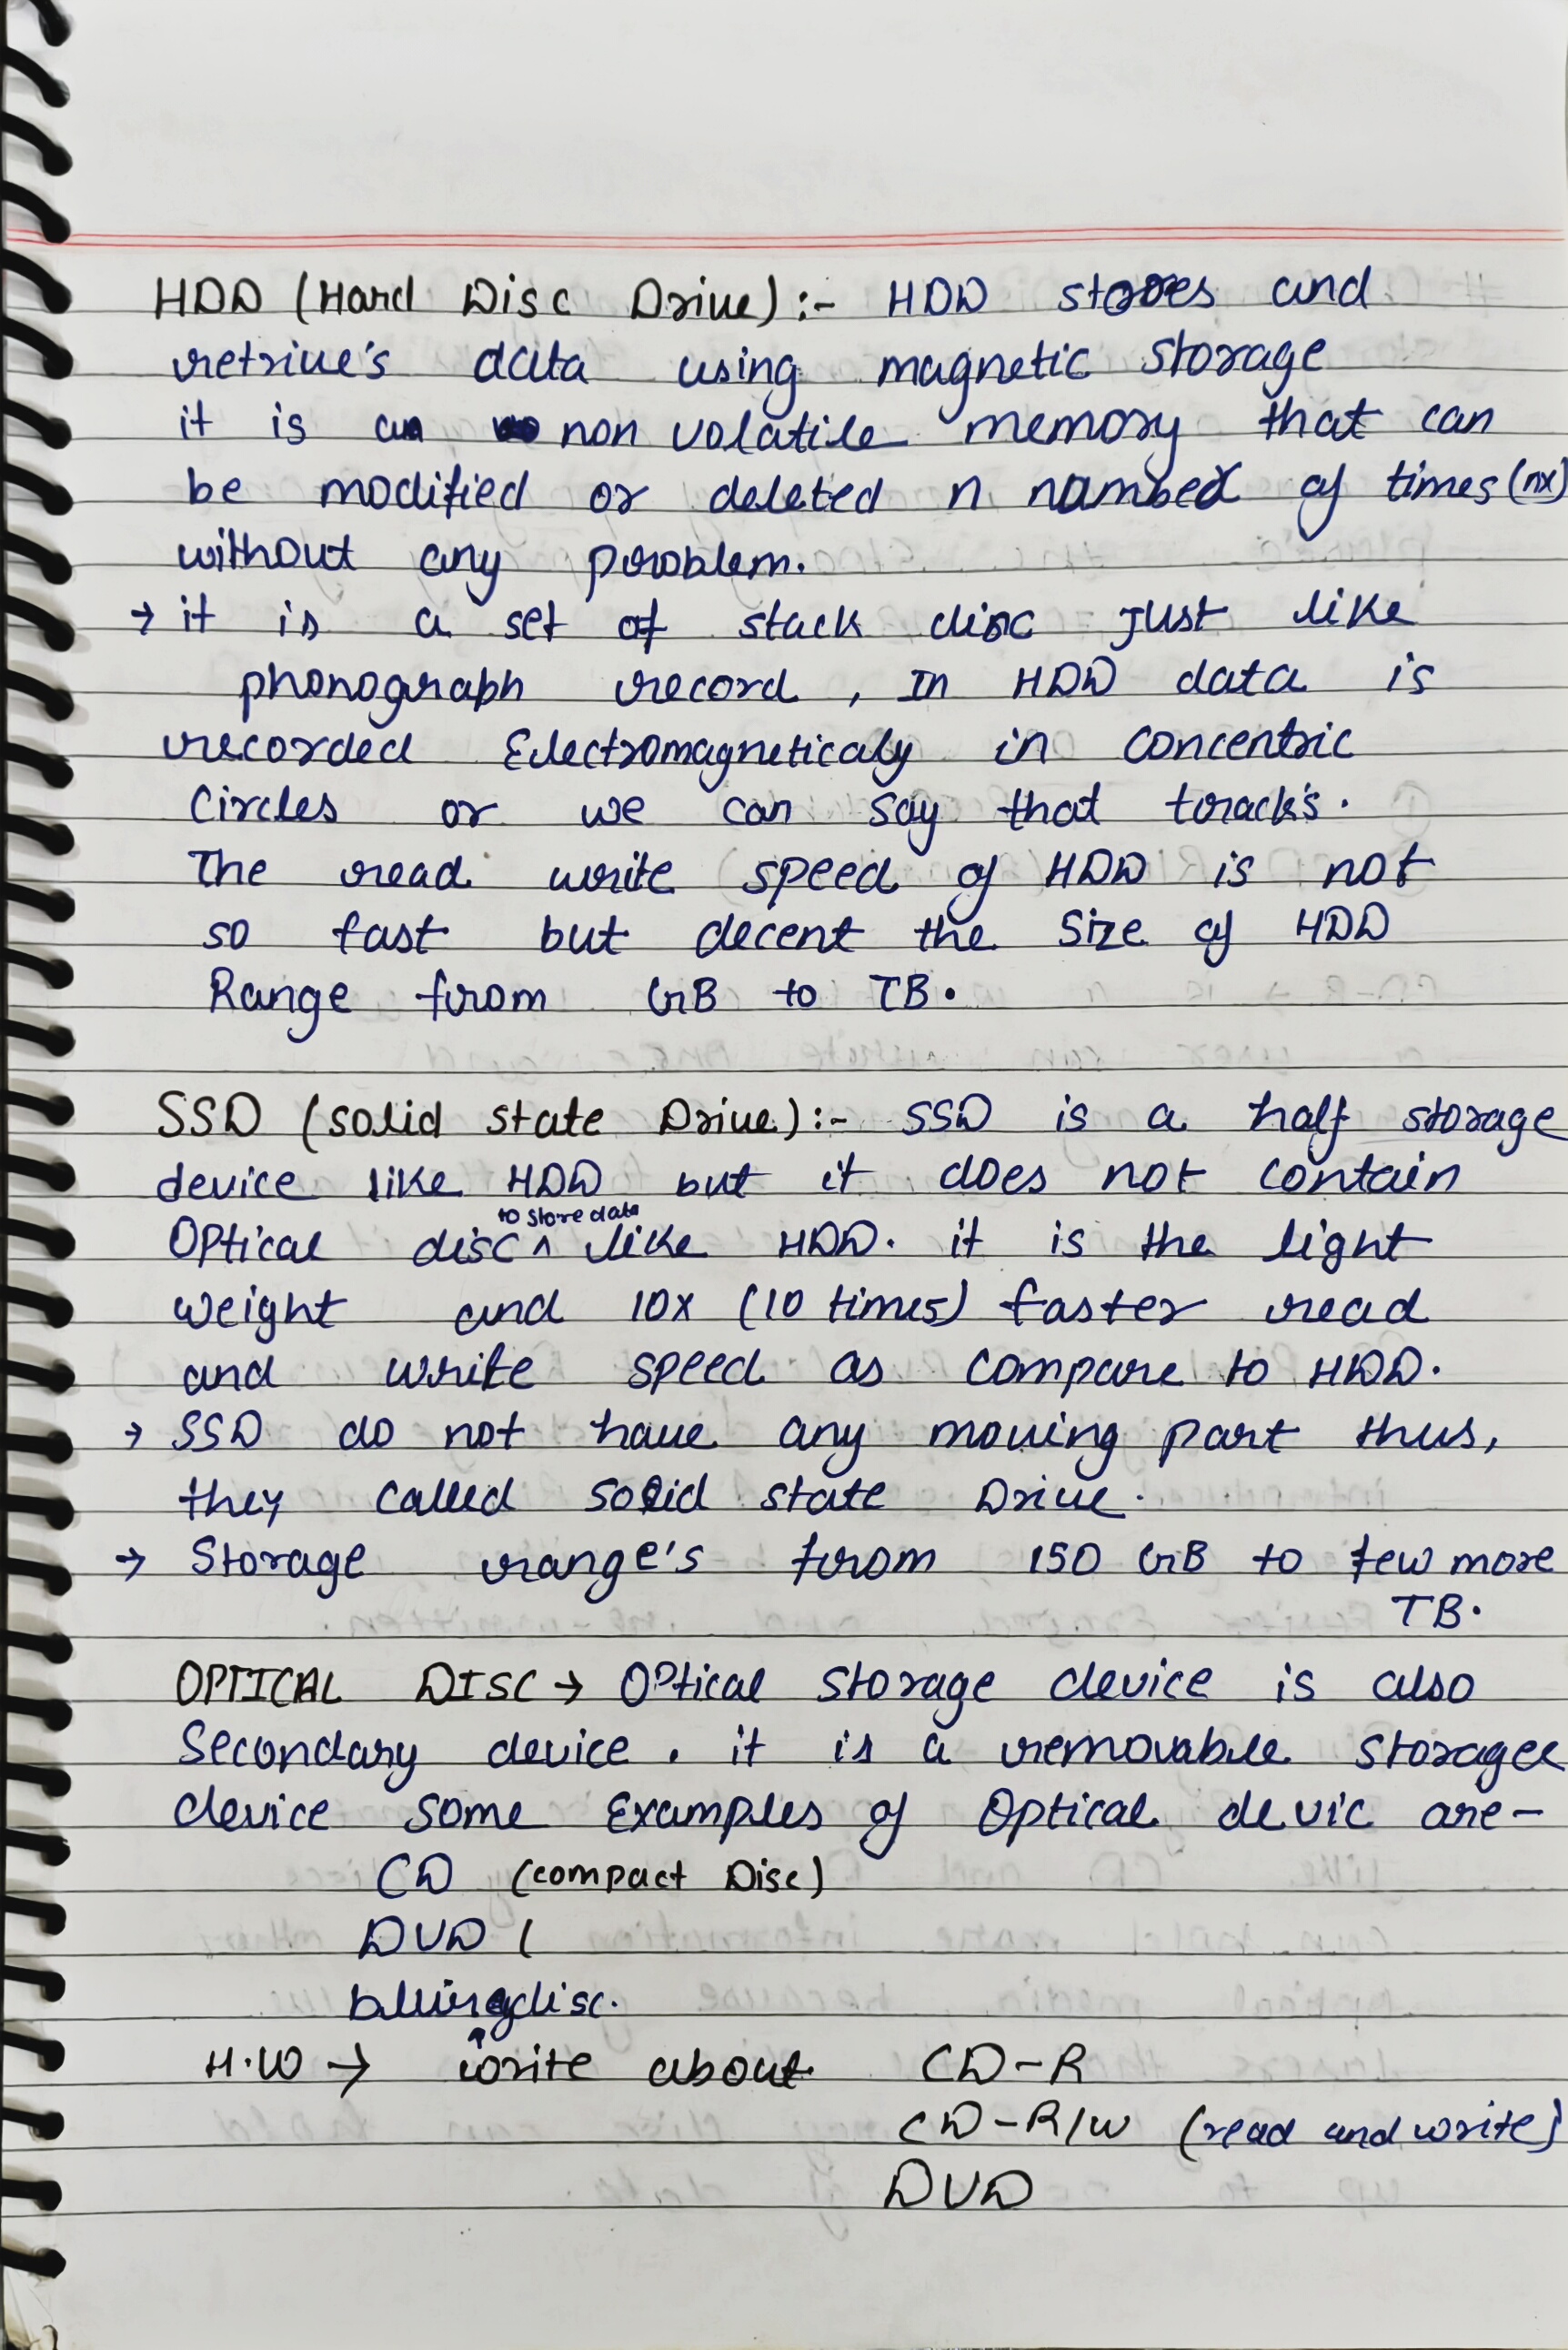 HDD (Hard Disc Drive) :- HDD stores and
retrive's data using magnetic storage
it is a non volatile memory that can
be modified or deleted n number of times (nx)
without any problem.
→ it is a set of stack disc just like
phonograph record, In HDD data is
recorded Electromagneticaly in concentric
Circles or we can say that track's.
The read write speed of HDD is not
so fast but decent the size of HDD
Range from GB to TB.
SSD (solid state Drive) :- SSD is a half storage
device like HDD but it does not contain
to store data
Optical disc ^ like HDD. it is the light
weight and 10x (10 times) faster read
and write speed as compare to HDD.
→ SSD do not have any moving part thus,
they called solid state Drive.
→ Storage range's from 150 GB to few more
TB.
OPTICAL DISC → Optical storage device is also
Secondary device. it is a removable storage
device some Examples of Optical devic are-
CD (compact Disc)
DVD (
disc.
H.W → write about CD-R
CD-R/W (read and write)
DVD